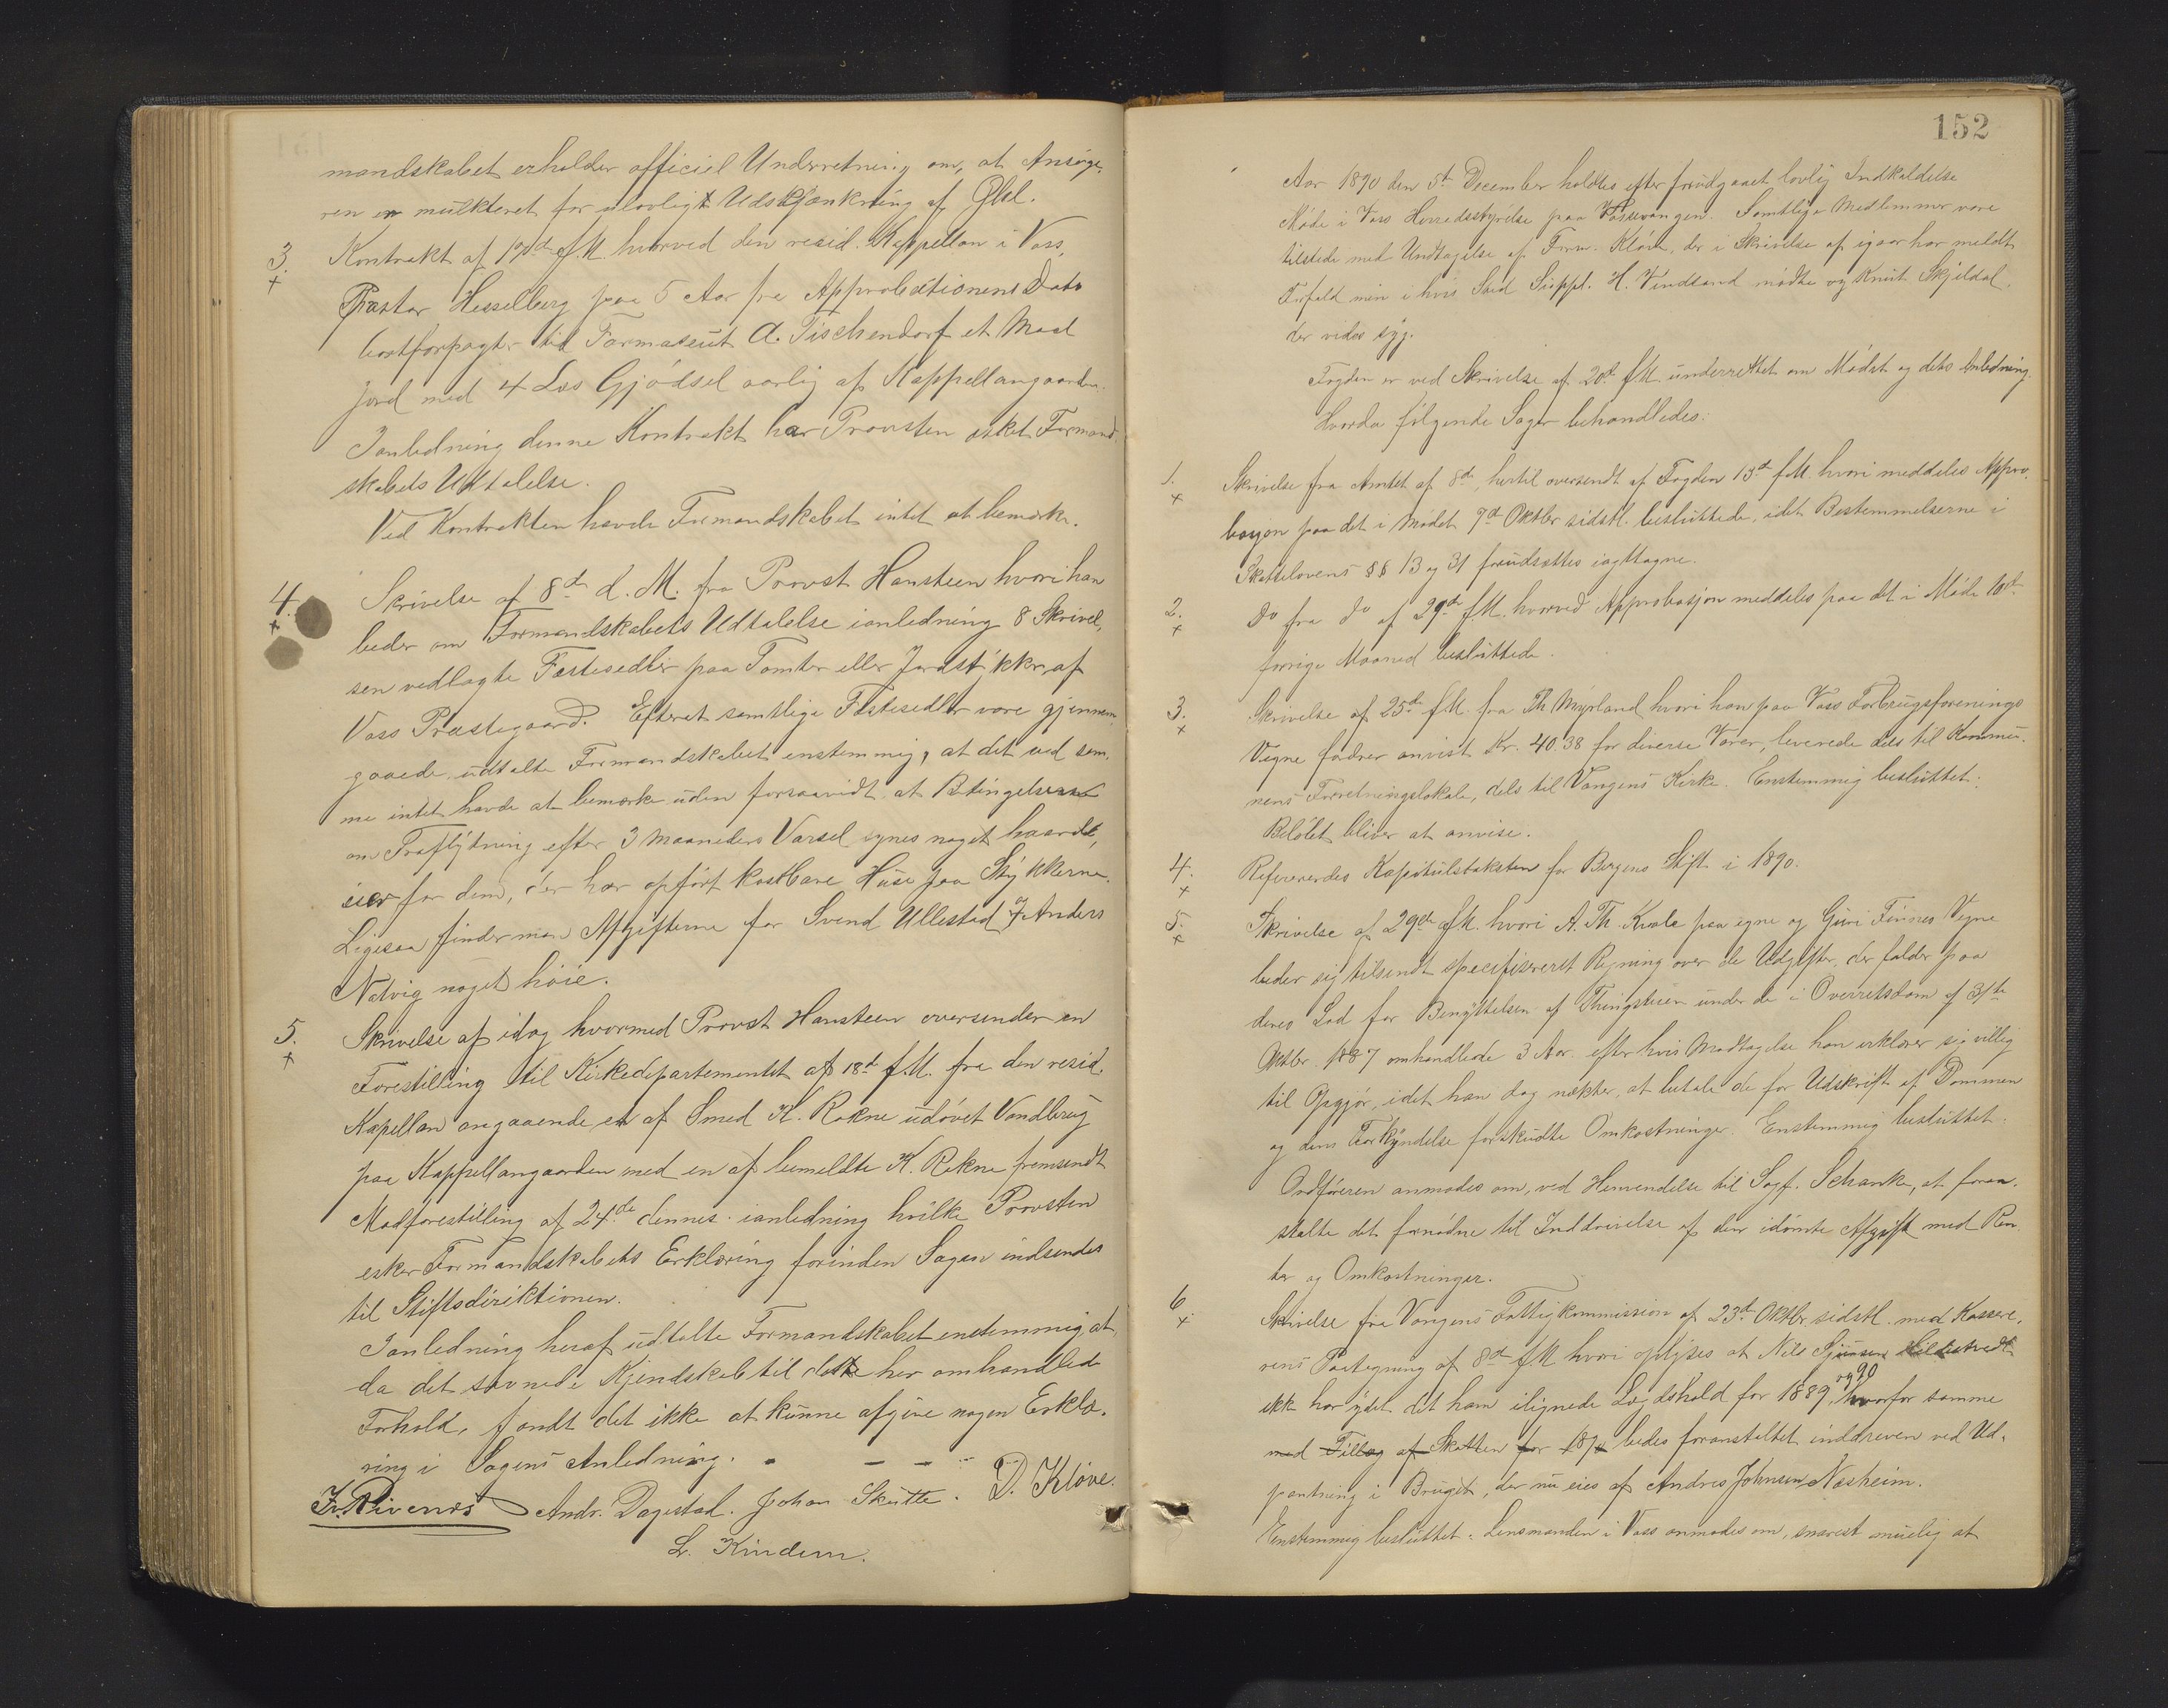 mandskabet erholder officiel Underretning om, at Ansøge-
ren er mulkteret for ulovligt Udskjænkning af Øhl.
3. Kontrakt af 17de f.M. hvorved den resid. Kappellan i Voss,
Pastor Hesselberg paa 5 Aar fra Approbationens Dato
bortforpagter til Farmaseut A. Tischendorf et Maal
Jord med 4 Læs Gjødsel aarlig af Kappellangaarden.
Ianledning denne Kontrakt har Provsten æsket Formand-
skabets Udtalelse.
Ved Kontrakten havde Formandskabet intet at bemærke.
4. Skrivelse af 8de d. M. fra Provst Hansteen hvori han
beder om Formandskabets Udtalelse ianledning 8 Skrivel-
sen vedlagte Fæstesedler paa Tomter eller Jordstykker af
Voss Præstegaard. Efterat samtlige Fæstesedler vare gjennem-
gaaede, udtalte Formandskabet enstemmig, at det ved sam-
me intet havde at bemærke uden forsaavidt at Betingelserne
om Fraflytning efter 3 Maaneders Varsel synes noget haardt,
især for dem, der har opført kostbare Huse paa Stykkerne.
Ligesaa finder man Afgifterne for Svend Ullestad & Anders
Natvig noget høie.
5. Skrivelse af idag hvormed Provst Hansteen oversender en
Forestilling til Kirkedepartementet af 18de f.M. fra den resid.
Kapellan angaaende et af Smed K. Rokne udøvet Vandbrug
paa Kappellangaarden med en af bemeldte K. Rokne fremsendt
Modforestilling af 24de dennes. ianledning hvilke Provsten
esker Formandskabets Erklæring forinden Sagen indsendes
til Stiftsdirektionen.
Ianledning heraf udtalte Formandskabet enstemmig at,
da det savnede Kjendskab til dette her omhandlede
Forhold, fandt det ikke at kunne afgive nogen Erklæ-
ring i Sagens Anledning. - - - -
Andr. Dagestad. Johan Skutle. D. Kløve.
L. Kindem.
152
Aar 1890 den 5te December holdtes efter forudgaaet lovlig Indkaldelse
Møde i Voss Herredsstyrelse paa Vossevangen. Samtlige Medlemmer vare
tilstede med Undtagelse af Form. Kløve, der i Skrivelse af igaar har meldt
Forfald men i hvis Sted Suppl. H. Vindsand mødte og Knut Skjeldal,
der vides syg.
Fogden er ved Skrivelse af 20de f.M. underrettet om Mødet og dets Anledning.
Hvorda følgende Sager behandledes:
1. Skrivelse fra Amtet af 8de, hertil oversendt af Fogden 13de f.M. hvori meddeles Appro-
basjon paa det i Mødet 7de Oktbr sidstl. besluttede, idet Bestemmelserne i
Skattelovens §§ 13 og 31 forudsættes iagttagne.
2. Do fra do af 29de f.M. hvorved Approbasjon meddeles paa det i Møde 10de
forrige Maaned besluttede.
3. Skrivelse af 25de f.M. fra Th Myrland hvori han paa Voss Forbrugsforenings
Vegne fordrer anvist Kr. 40.38 for diverse Varer, leverede dels til Kommu-
nens Forretningslokale, dels til Vangens Kirke. Enstemmig besluttet:
Beløbet bliver at anvise.
4. Refereredes Kapitulstaksten for Bergens Stift i 1890.
5. Skrivelse af 29de f.M. hvori A. Th. Kvale paa egne og Guri Finnes Vegne
beder sig tilsendt specifiseret Regning over de Udgifter, der falder paa
deres Lod for Benyttelsen af Thingstuen under de i Overretsdom af 31te
Oktbr. 1887 omhandlede 3 Aar. efter hvis Modtagelse han erklærer sig villig
til Opgjør, idet han dog nekter, at betale de for Udskrift af Dommen
og dens Forkyndelse forskudte Omkostninger. Enstemmig besluttet:
Ordføreren anmodes om, ved Henvendelse til Sagf. Schanke, at foran-
stalte det fornødne til Inddrivelse af den idømte Afgift med Ren-
ter og Omkostninger.
6. Skrivelse fra Vangens Fattigkommission af 23de Oktbr. sidstl. med Kassere-
rens Paategning af 8de f.M. hvori oplyses at Nils
ikke har ydet det ham ilignede Lægdshold for 1889 og 90, hvorfor samme
med Tillæg af Skatten for 1890 bedes foranstaltet inddreven ved Ud-
pantning i Bruget, der nu eies af Andres Johnsen Næsheim.
Enstemmig besluttet: Lensmanden i Voss anmodes om, snarest muelig at